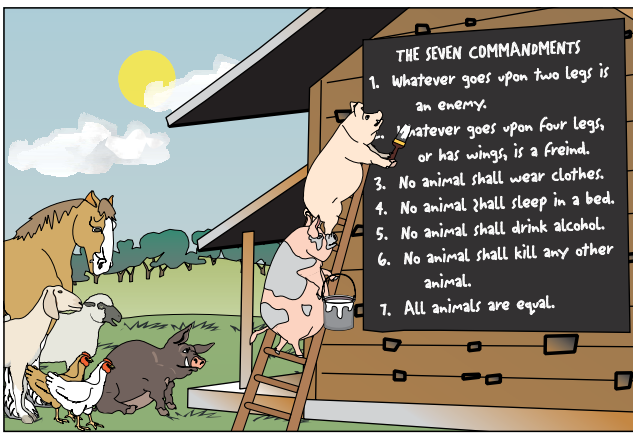 THE SEVEN COMMANDMENTS
1. Whatever goes upon two legs is
an enemy.
2. Whatever goes upon four legs,
or has wings, is a freind.
3. No animal shall wear clothes.
4. No animal shall sleep in a bed.
5. No animal shall drink alcohol.
6. No animal shall kill any other
animal.
7. All animals are equal.